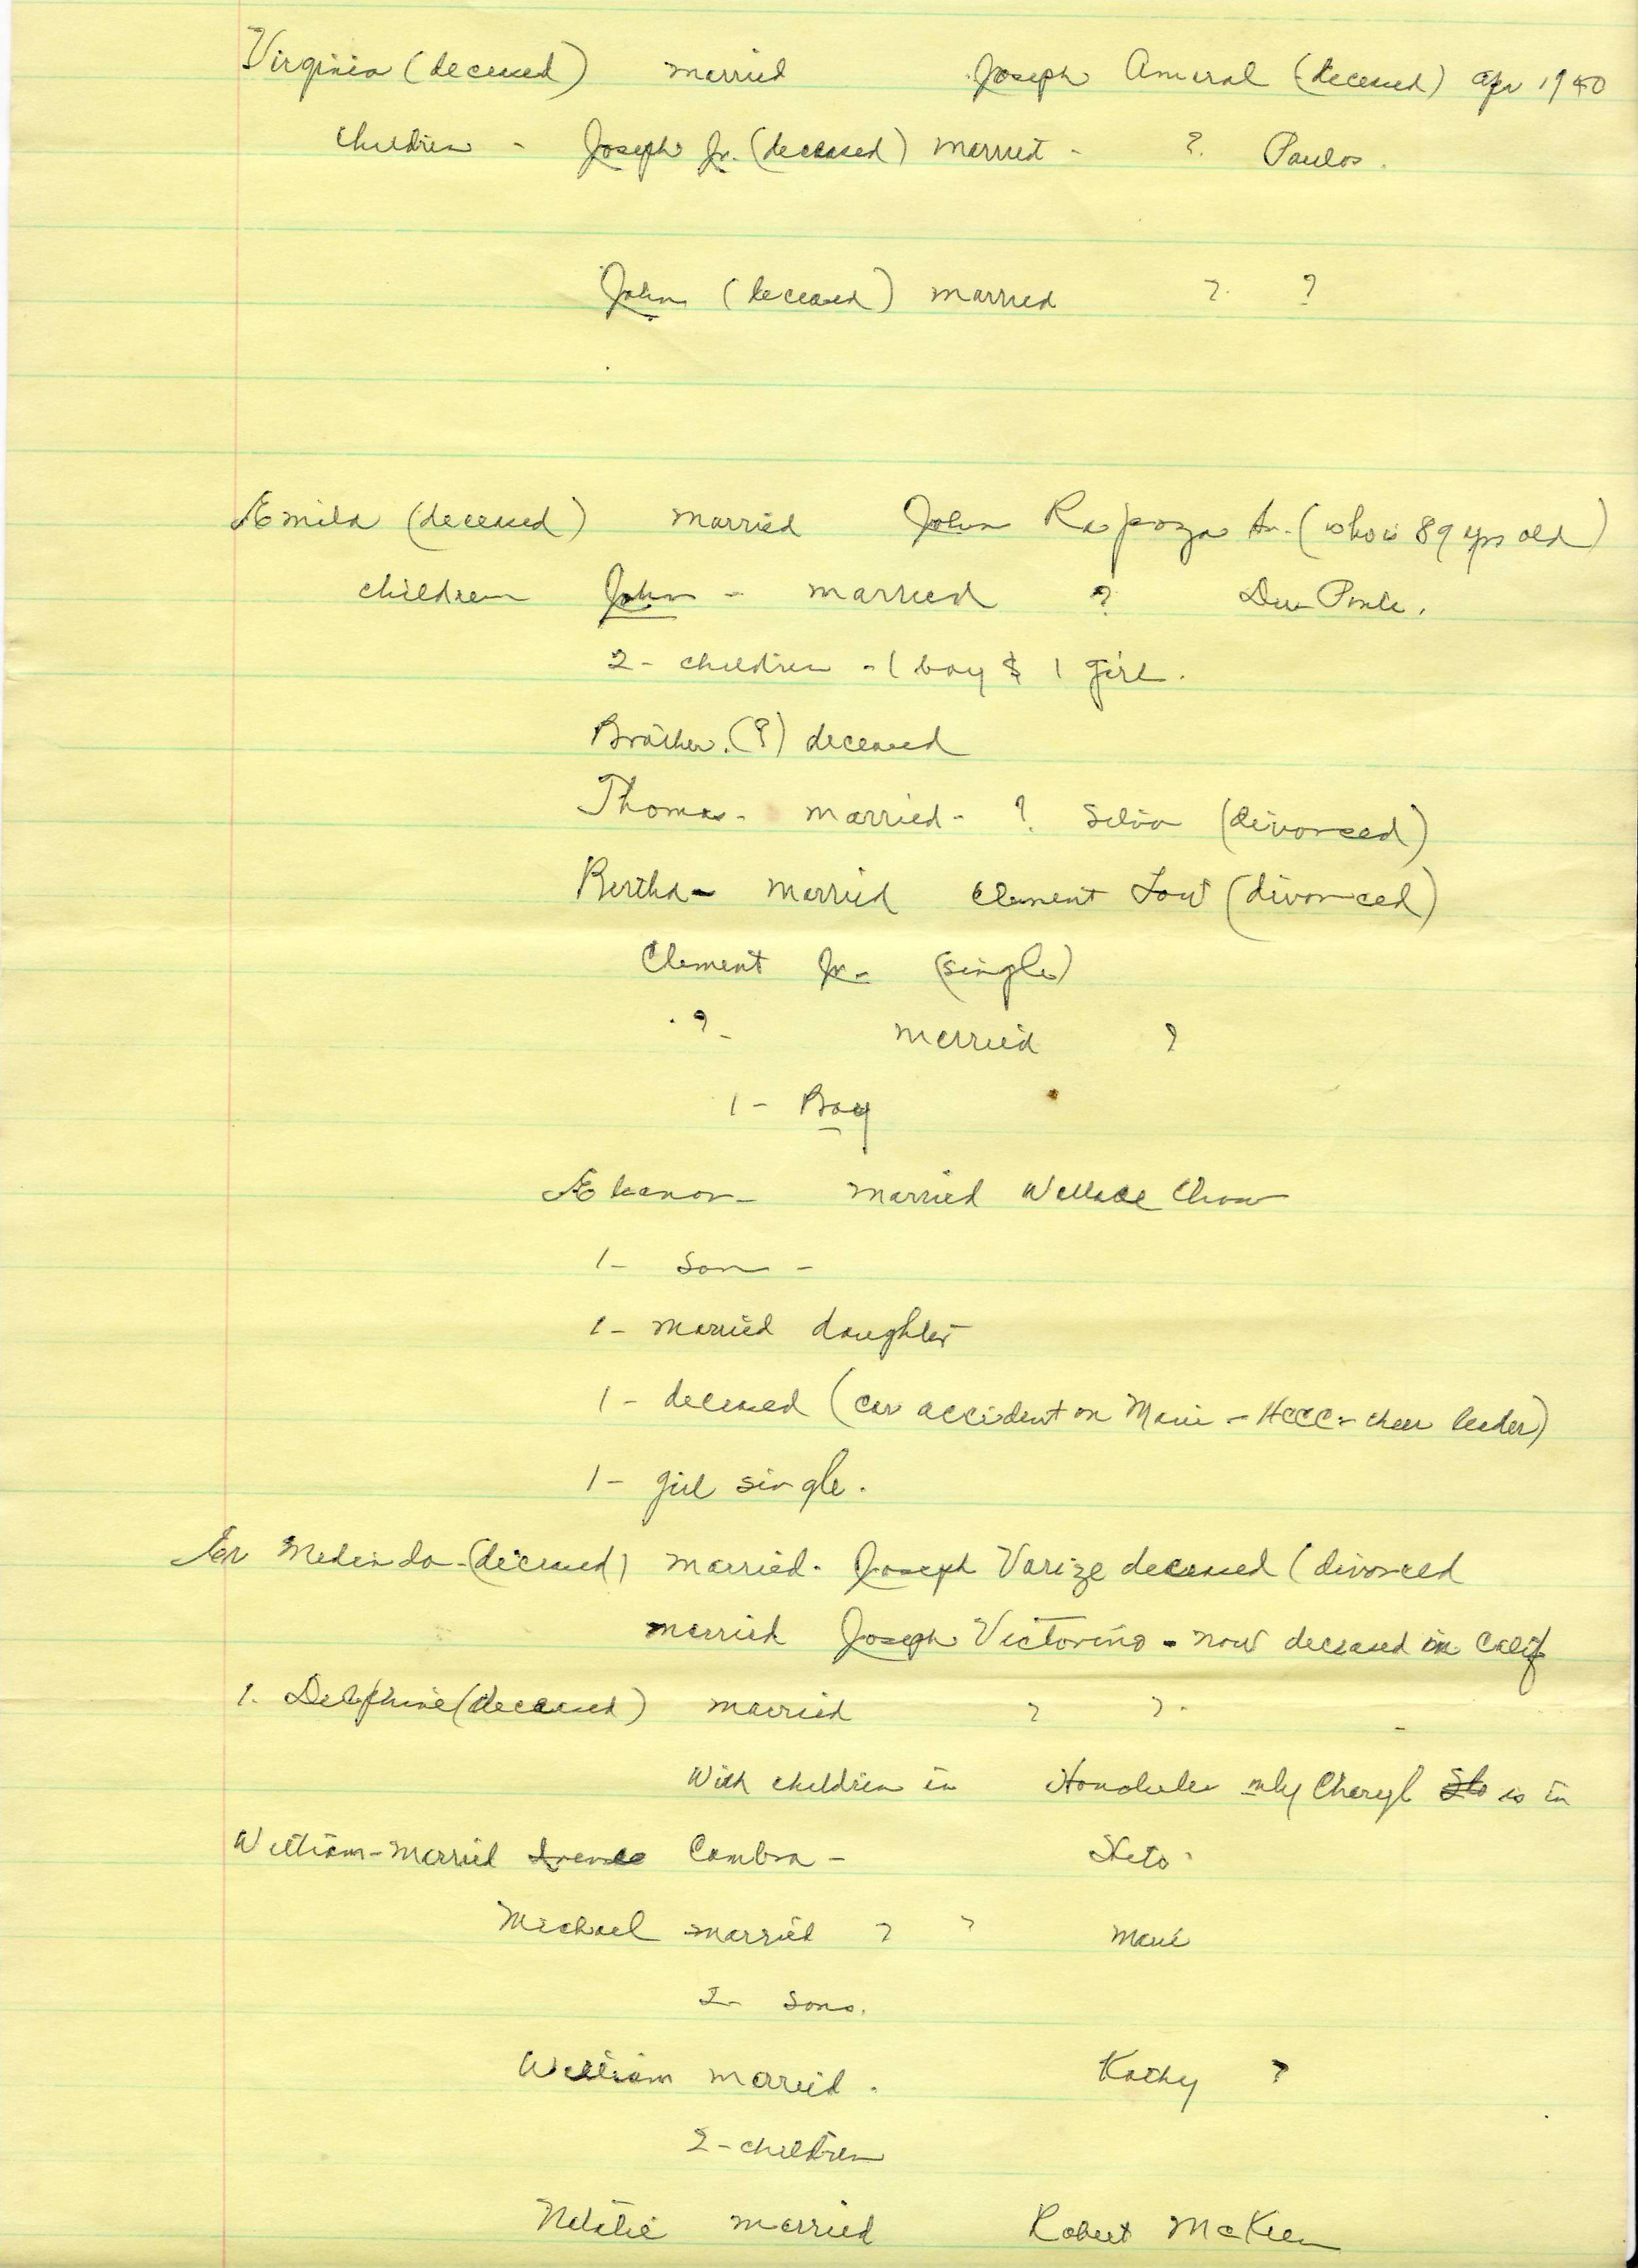 Virginia (deceased) married Joseph Amaral (deceased) Apr 1940
Children - Joseph Jr. (deceased) married - ? Paulos.
John (deceased) married ? ?
Emila (deceased) married John Rapoza Sr. (who is 89 yrs old)
children John - married ? De Ponte.
2 - children - 1 boy & 1 girl.
Brother. (?) deceased
Thomas - married - ? Silva (divorced)
Bertha - married Clement Low (divorced)
Clement Jr. (single)
? - married ?
1 - Boy
Eleanor - married Wallace Chow
1 - son -
1 - married daughter
1 - deceased (car accident on Maui - HCCC - cheer leader)
1 - girl single.
Medinda - (deceased) married - Joseph Varize deceased (divorced
married Joseph Victorino - now deceased in Calif
1. Delphine (deceased) married ? ? -
With children in Honolulu only Cheryl is in
William - married Cambra - Hilo
Michael married ? ? Maui
2 - sons.
William married - Kathy ?
2 - children
Natalie married Robert McKeen